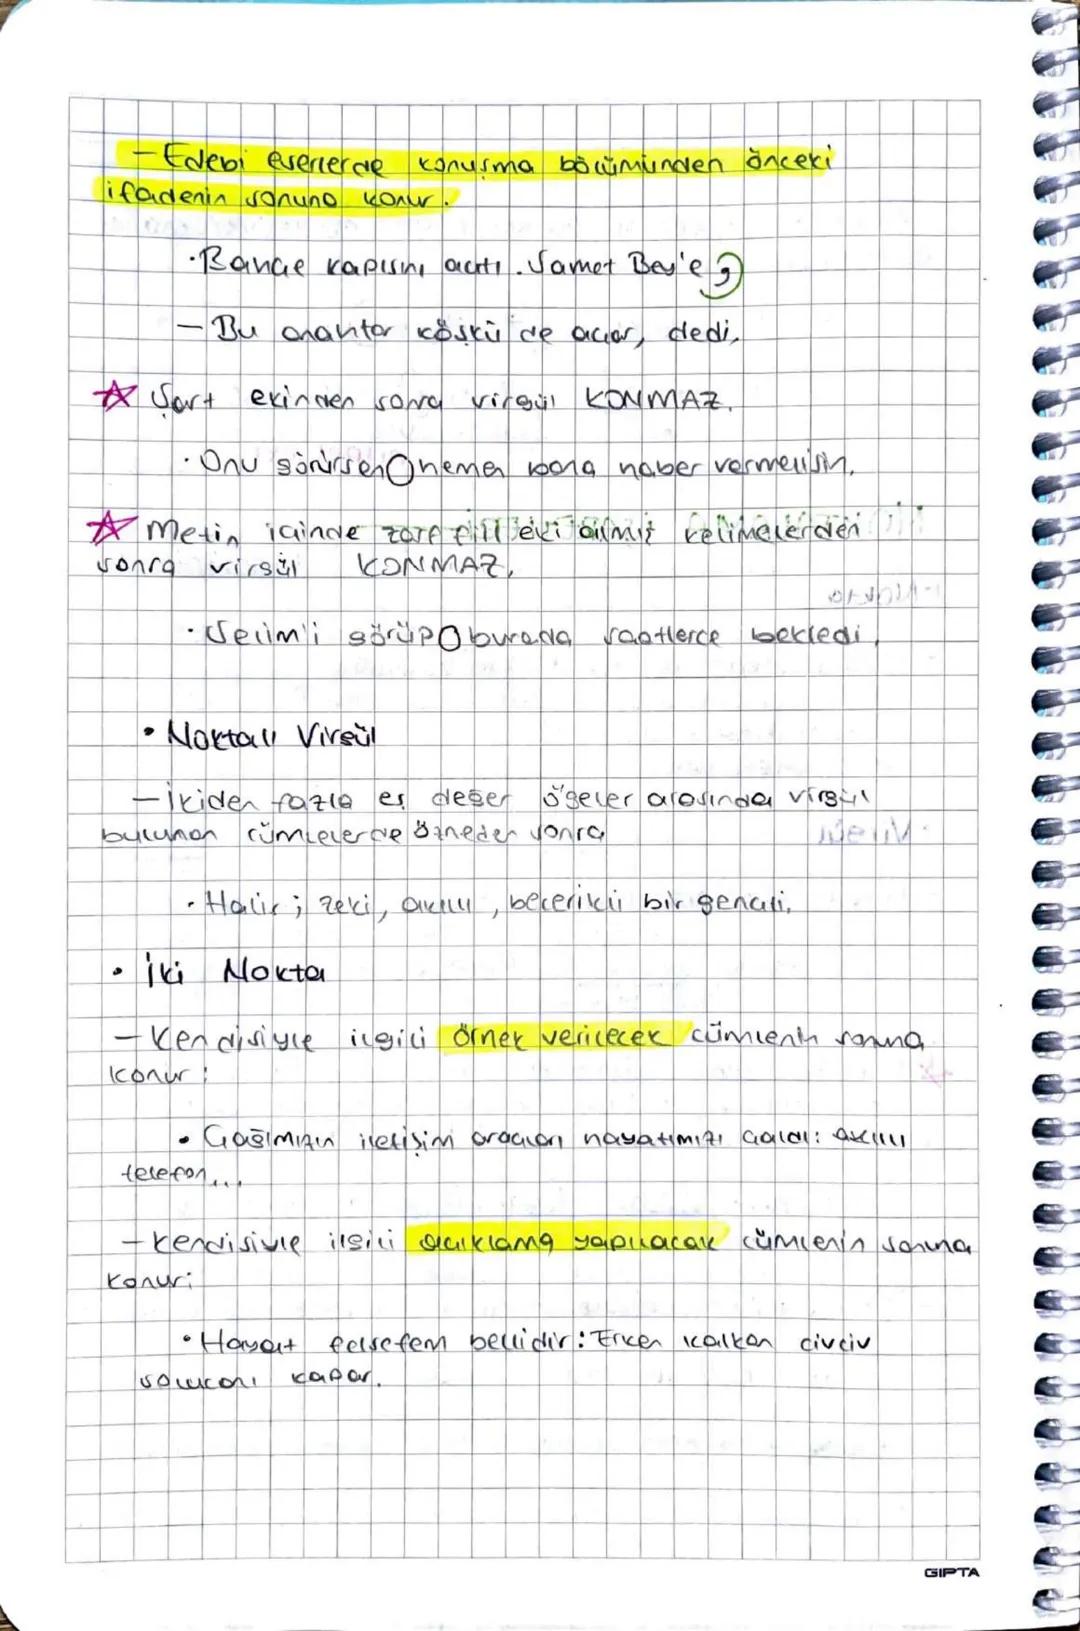 - Edebi eserlerde konuşma bölümünden önceki
ifadenin sonuna konur.
• Bahçe kapısını açtı. Samet Bey'e,
- Bu anahtar köşkü de açar, dedi.
☆ Şart ekinden sonra virgül KONMAZ.
• Onu görürsen hemen bana haber vermelisin.
☆ Metin içinde zarf fiil eki almış kelimelerden
sonra virgül KONMAZ.
• Selim'i görüp burada saatlerce bekledi.
• Noktalı Virgül
- İkiden fazla eş değer ögeler arasında virgül
bulunan cümlelerde özneden sonra
• Halis; zeki, akıllı, becerikli bir gençti.
• İki Nokta
- Kendisiyle ilgili örnek verilecek cümlenin sonuna
konur:
• Çağımızın iletişim araçları hayatımızı çaldı: akıllı
telefon...
- Kendisiyle ilgili açıklama yapılacak cümlenin sonuna
konur:
• Hayat felsefem bellidir: Erken kalkan civciv
solucanı kapar.
GIPTA